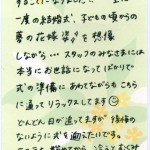 することになりました
一度の結婚式、子どもの頃からの
夢の花嫁姿を想像
しながら… スタッフのみなさまには
本当にお世話になってばかりで
式の準備にあわてながらもこちら
に通ってリラックスしてます
どんどん日が迫ってますが後悔の
ないように式を迎えたいです。